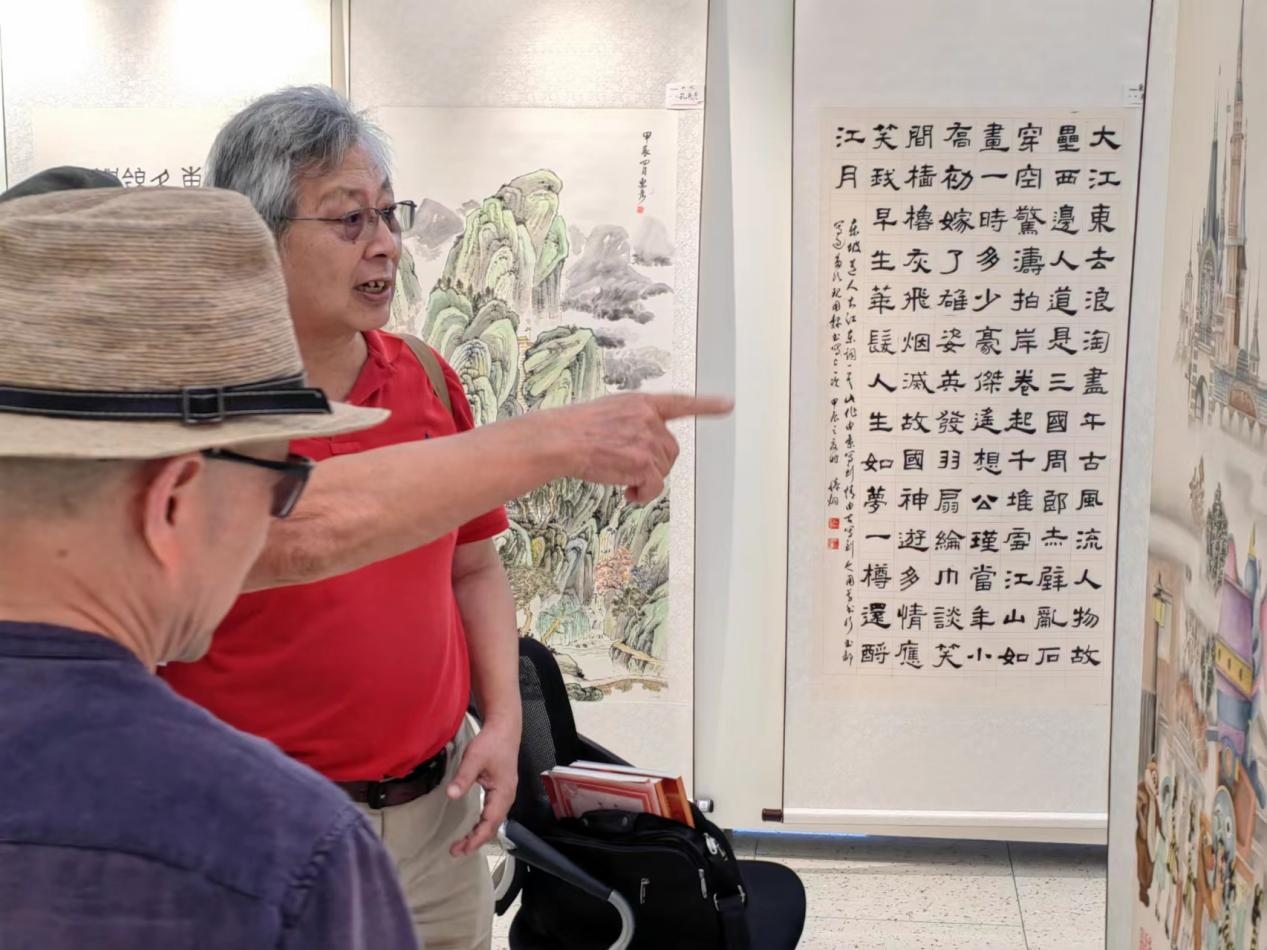 大江東去浪淘盡年古風流人物故
壘西邊人道是三國周郎赤壁亂石
穿空驚濤拍岸卷起千堆雪江山如
畫一時多少豪傑遙想公瑾當年小
喬初嫁了雄姿英發羽扇綸巾談笑
間檣櫓灰飛烟滅故國神遊多情應
笑我早生華髮人生如夢一樽還酹
江月
東坡道人大江東詞一
甲辰之夏
甲辰四月